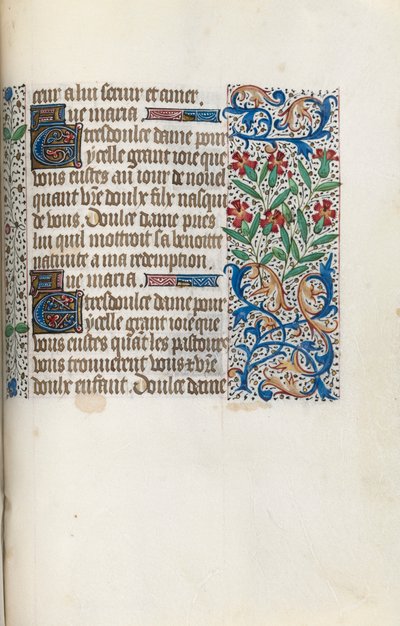 ceur a lui seruir et amer.
Aue maria
E tresdoulce dame pour
ycelle grant ioie que
vous eustes au iour de nouel
quant vr̃e doulx filz nasqui
de vous. Doulce dame pries
lui quil mottroit sa benoitte
natiuite a ma redemption.
Aue maria.
E tresdoulce dame pour
ycelle grant ioie que
vous eustes quãt les pastours
vous trouuerent vous ⁊ vr̃e
doulx enfant. Doulce dame